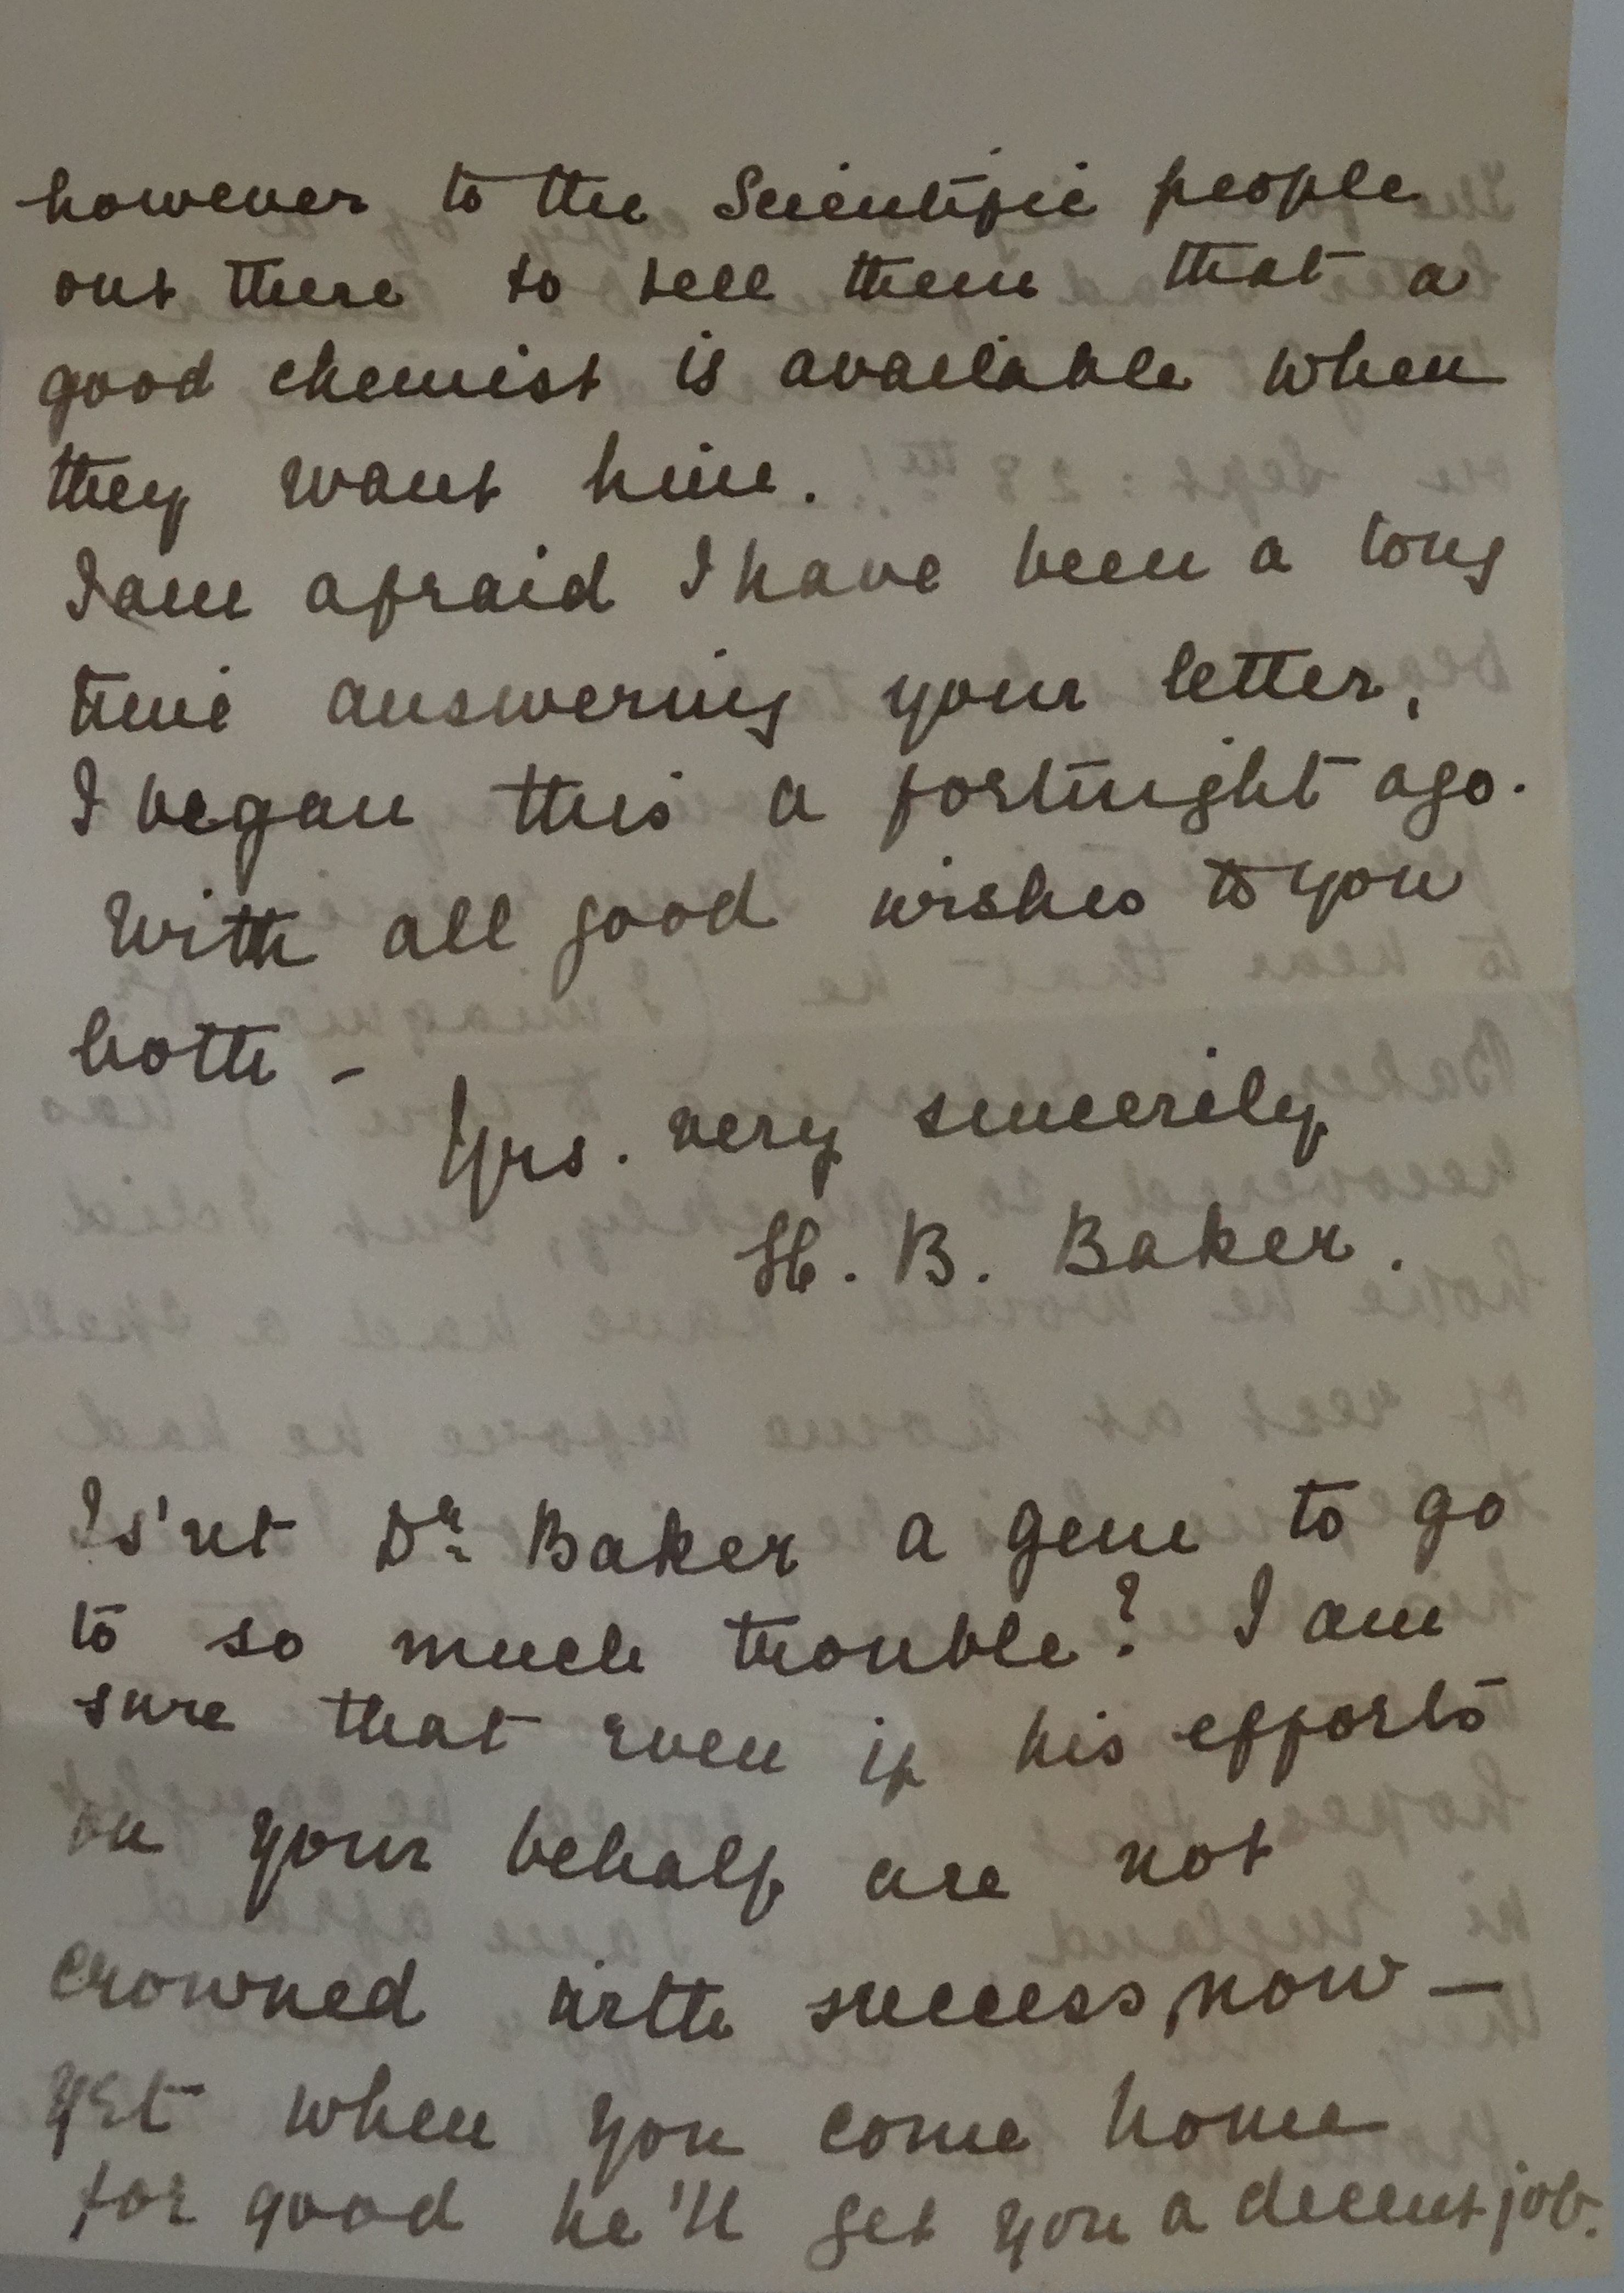 however to the Scientific people
out there to tell them that a
good chemist is available when
they want him.
I am afraid I have been a long
time answering your letter,
I began this a fortnight ago.
With all good wishes to you
both –
Yrs. very sincerely
H. B. Baker.
Is'nt Dr Baker a gem to go
to so much trouble? I am
sure that even if his efforts
on your behalf are not
crowned with success, now –
yet when you come home
for good he'll get you a decent job.